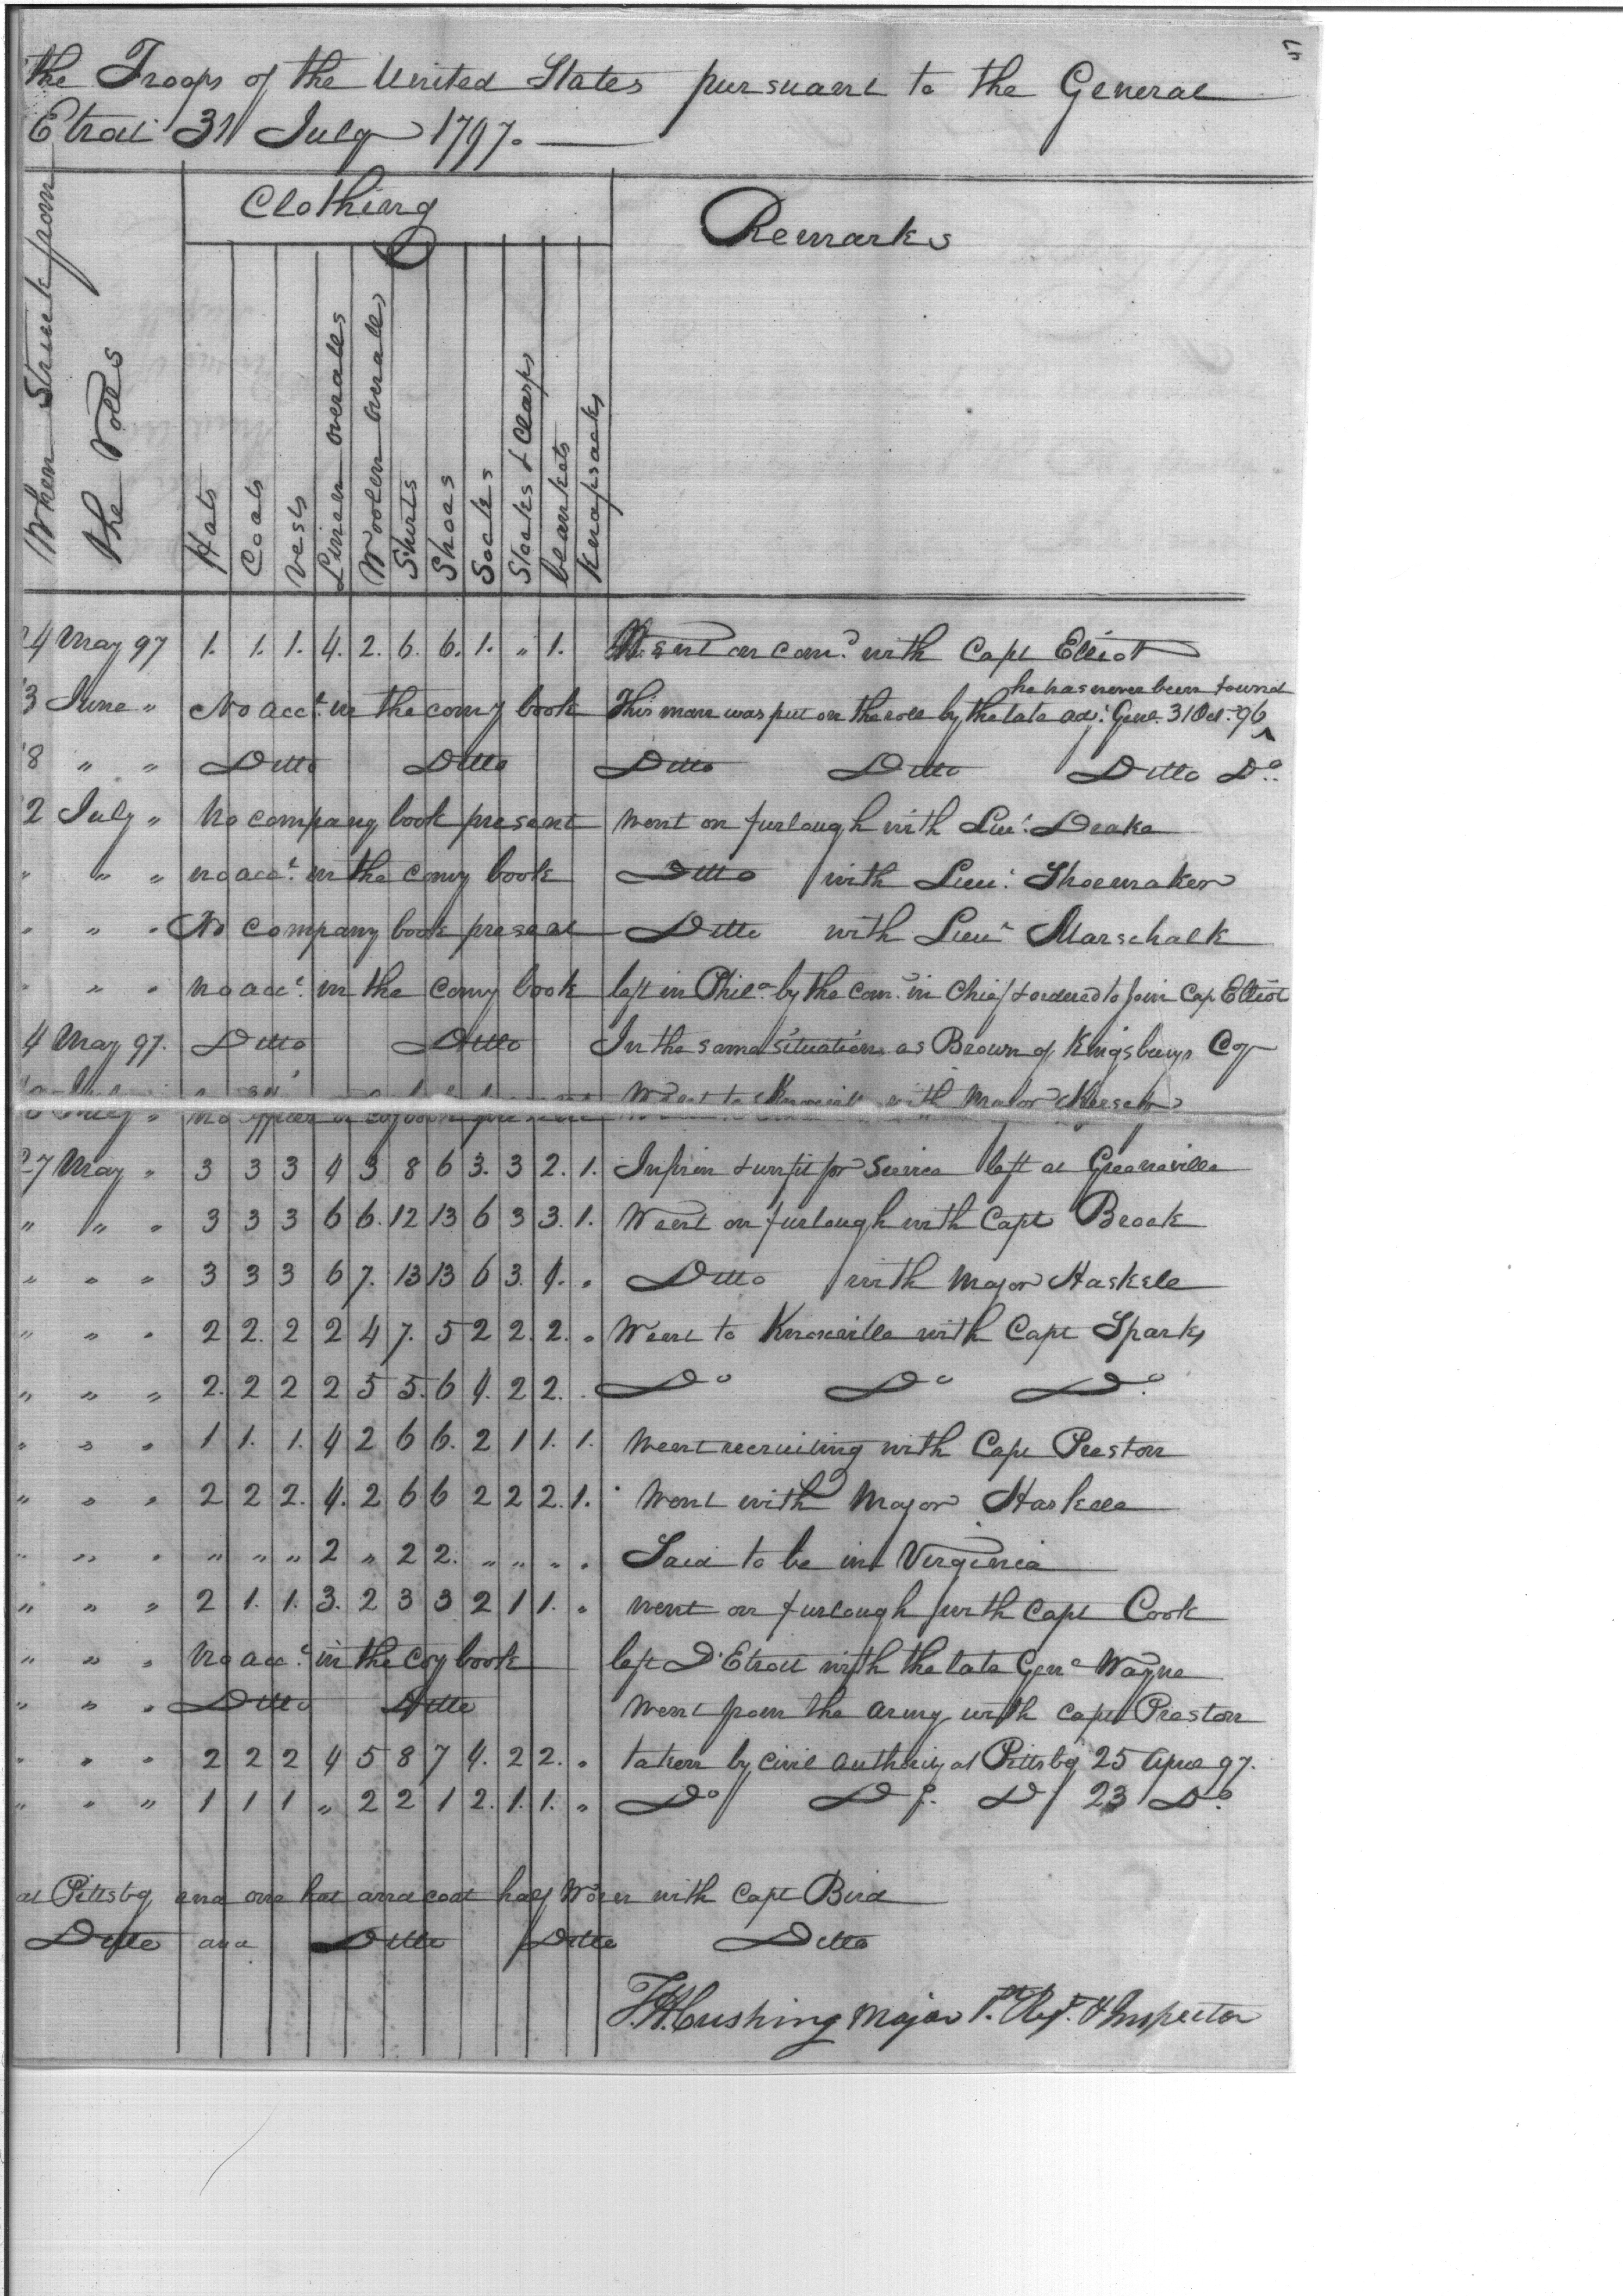 the Troops of the United States pursuant to the General
Etroit 31 July 1797.
When Struck from the Rolls
Clothing
Remarks
Hats
Coats
Vests
Linnen overalls
Woolen overalls
Shirts
Shoes
Socks
Stocks & Clasps
blankets
Knapsacks
4 May 97 1. 1. 1. 4. 2. 6. 6. 1. " 1. Went on com.d with Capt Elliot
he has never been found
3 June " No acct. in the comy book This man was put on the roll by the late adj.t Genl. 31 Oct. 96 ^
8 " " Ditto Ditto Ditto Ditto Ditto Do.
2 July " No company book present went on furlough with Lieut. Deake
" " " no acct. in the comy book Ditto with Lieut. Shoemaker
" " " No company book present Ditto with Lieut Marschalk
" " " no acct. in the comy book left in Phila. by the com.r in Chief & ordered to join Cap. Elliot
4 May 97. Ditto Ditto In the same situation as Brown of Kingsburys Coy
July " no officer or coy book present Went to with Major
27 May " 3 3 3 4 3 8 6 3. 3 2. 1. Infirm & unfit for Service left at Greeneville
" " " 3 3 3 6 6. 12 13 6 3 3. 1. Went on furlough with Capt Brock
" " " 3 3 3 6 7. 13 13 6 3. 4. " Ditto with Major Haskell
" " " 2 2. 2 2 4 7. 5 2 2. 2. " Went to Knoxville with Capt Sparks
" " " 2. 2 2 2 5 5. 6 4. 2 2. Do Do Do.
" " " 1 1. 1. 4 2 6 6. 2 1 1. 1. went recruiting with Capt Preston
" " " 2 2 2. 4. 2 6 6 2 2 2. 1. Went with Major Haskell
" " " " " " 2 " 2 2. " " " " Said to be in Virginia
" " " 2 1. 1. 3. 2 3 3 2 1 1. " went on furlough with Capt Cook
" " " No acct. in the Coy book left D'Etroit with the late Genl Wayne
" " " Ditto Ditto Went from the army with capt Preston
" " " 2 2 2 4 5 8 7 4. 2 2. " taken by Civil authority at Pittsbg 25 April 97.
" " " 1 1 1 " 2 2 1 2. 1. 1. " Do Do. Do 23 Do.
at Pittsbg and one hat and coat half Worn with Capt Bird
Ditto and Ditto Ditto Ditto
T.H. Cushing Major 1st. Regt. & Inspector